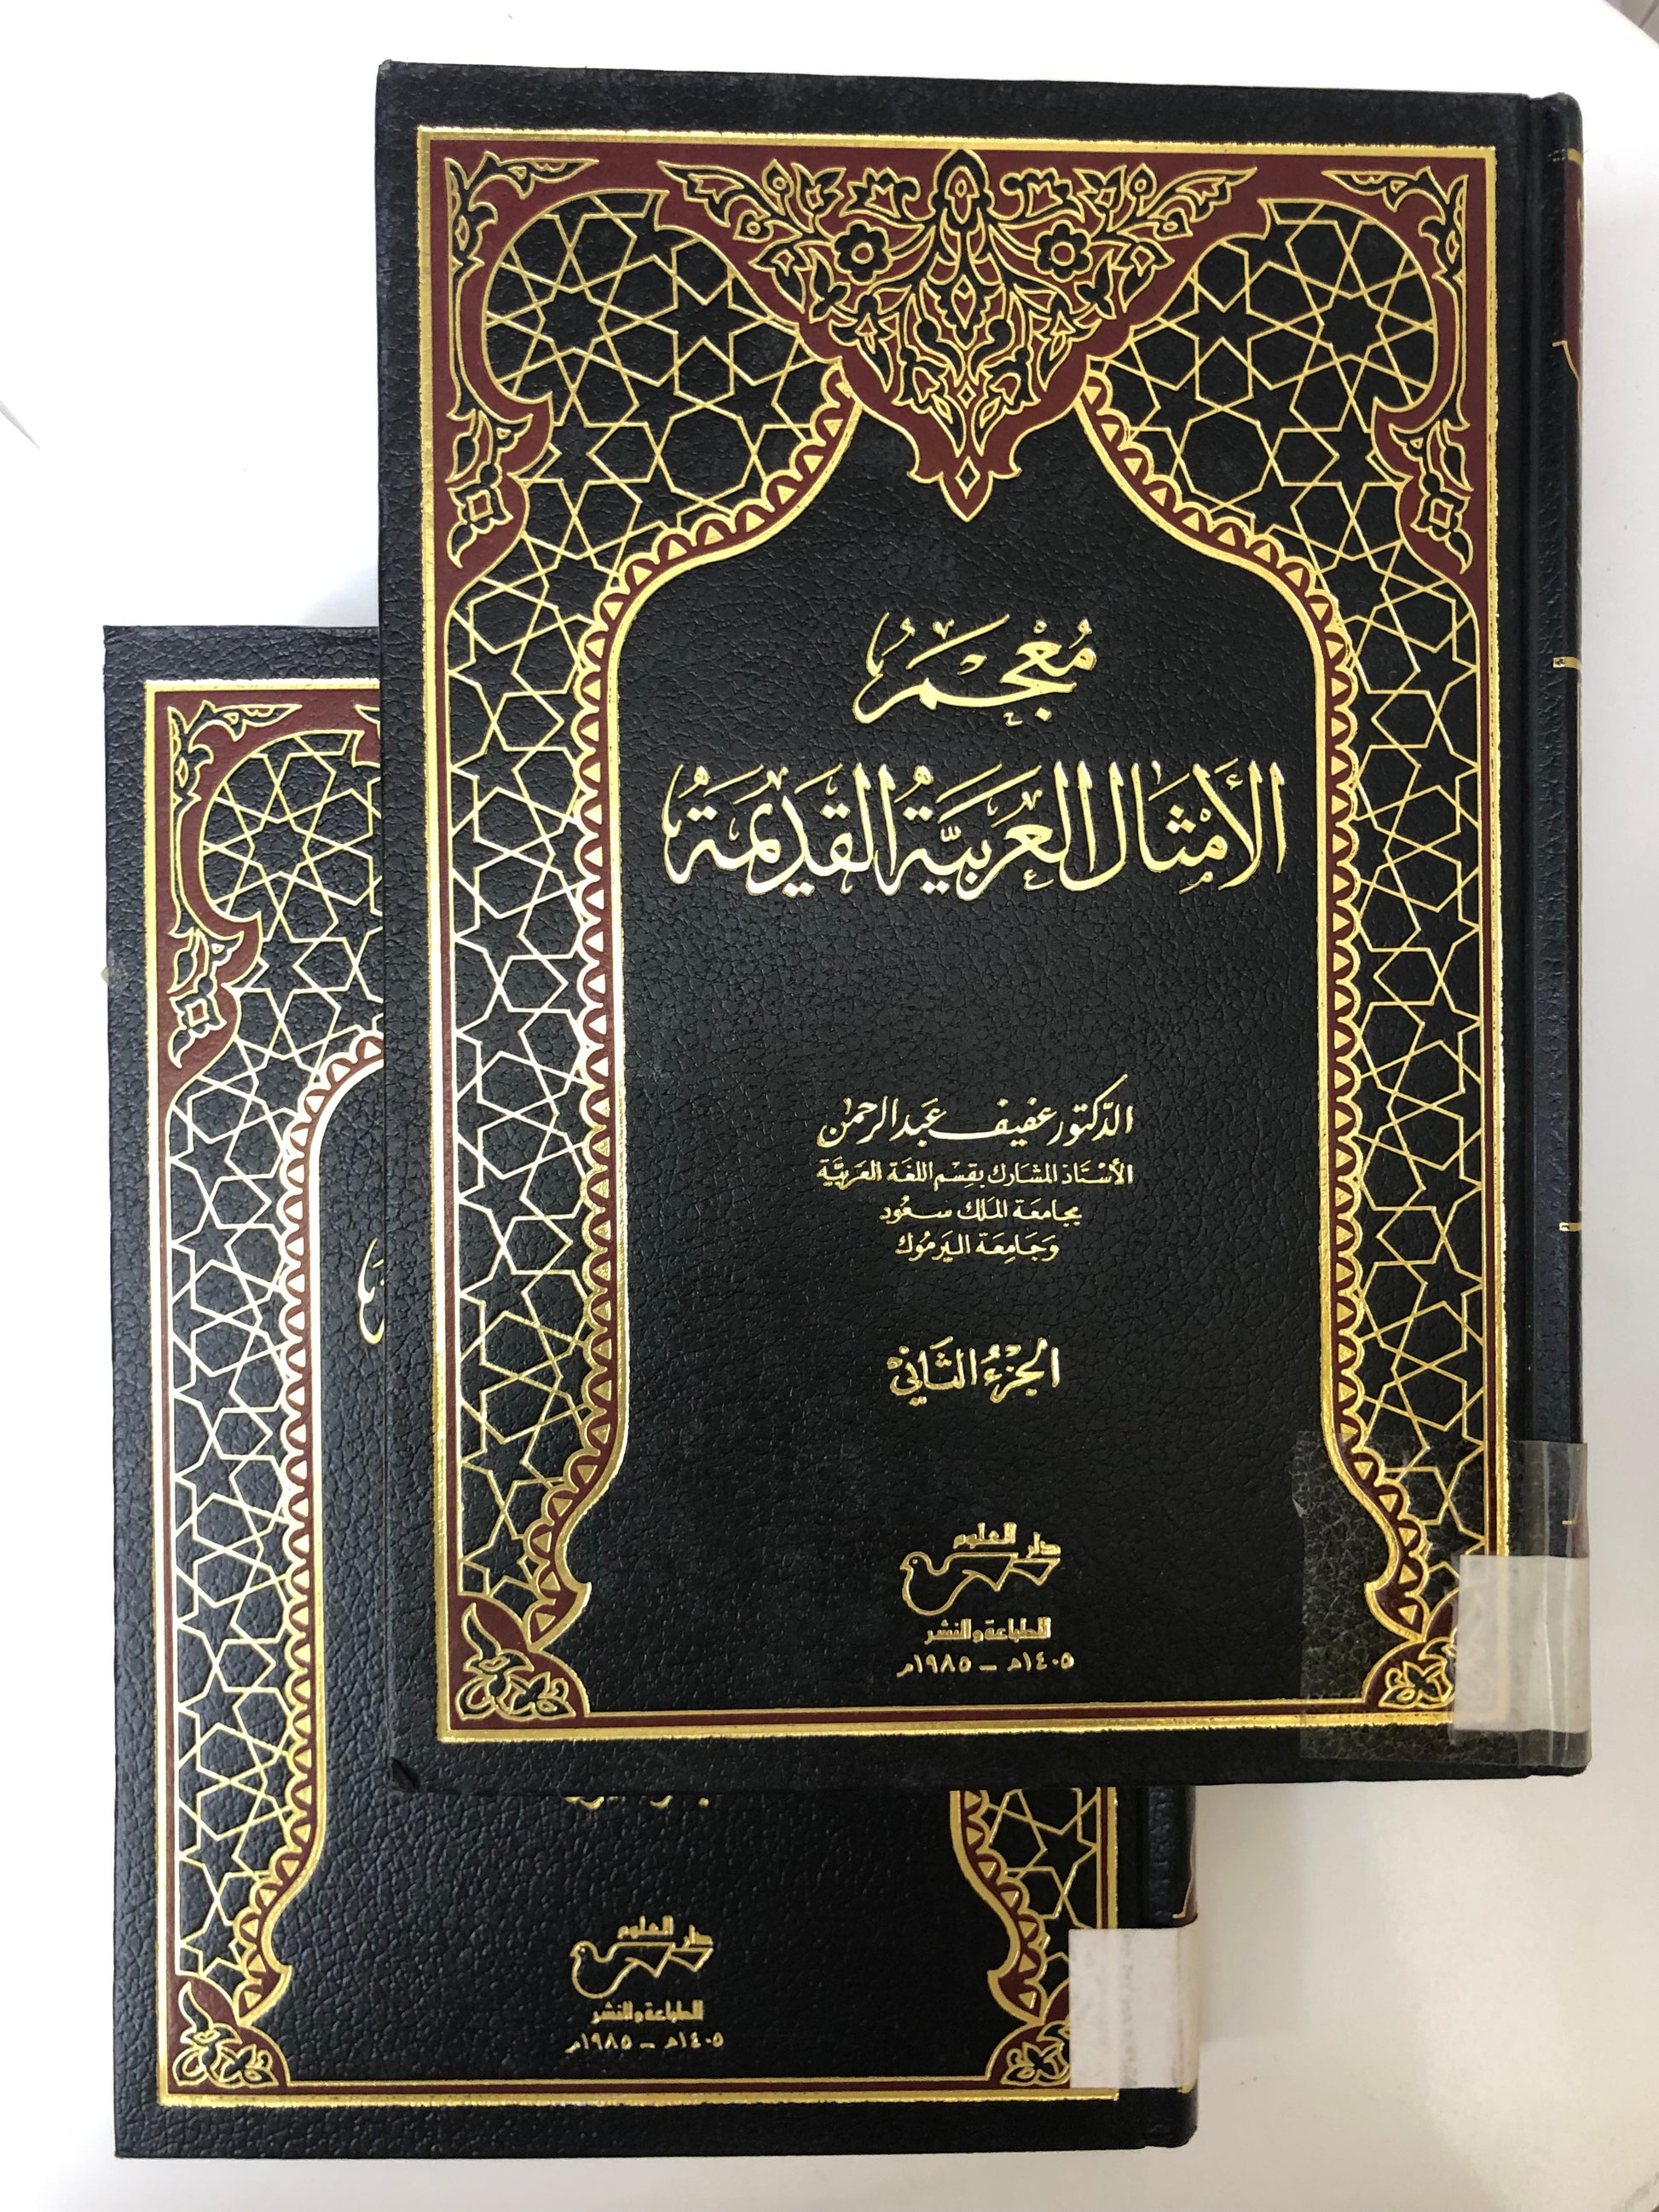 مُعْجَمُ
الأَمْثَال العَرَبِيَّةُ القَدِيمَةُ
الدّكتور عفيف عبد الرحمن
الأسْتَاذ المشَارك بقِسْم اللغَة العَرَبيَّة
بجامعَة المَلك سعُود
وَجَامِعَة اليَرمُوك
الجُزءُ الثَّاني
دار العلوم
للطباعة والنشر
١٤٠٥هـ - ١٩٨٥م
دار العلوم
للطباعة والنشر
١٤٠٥هـ - ١٩٨٥م